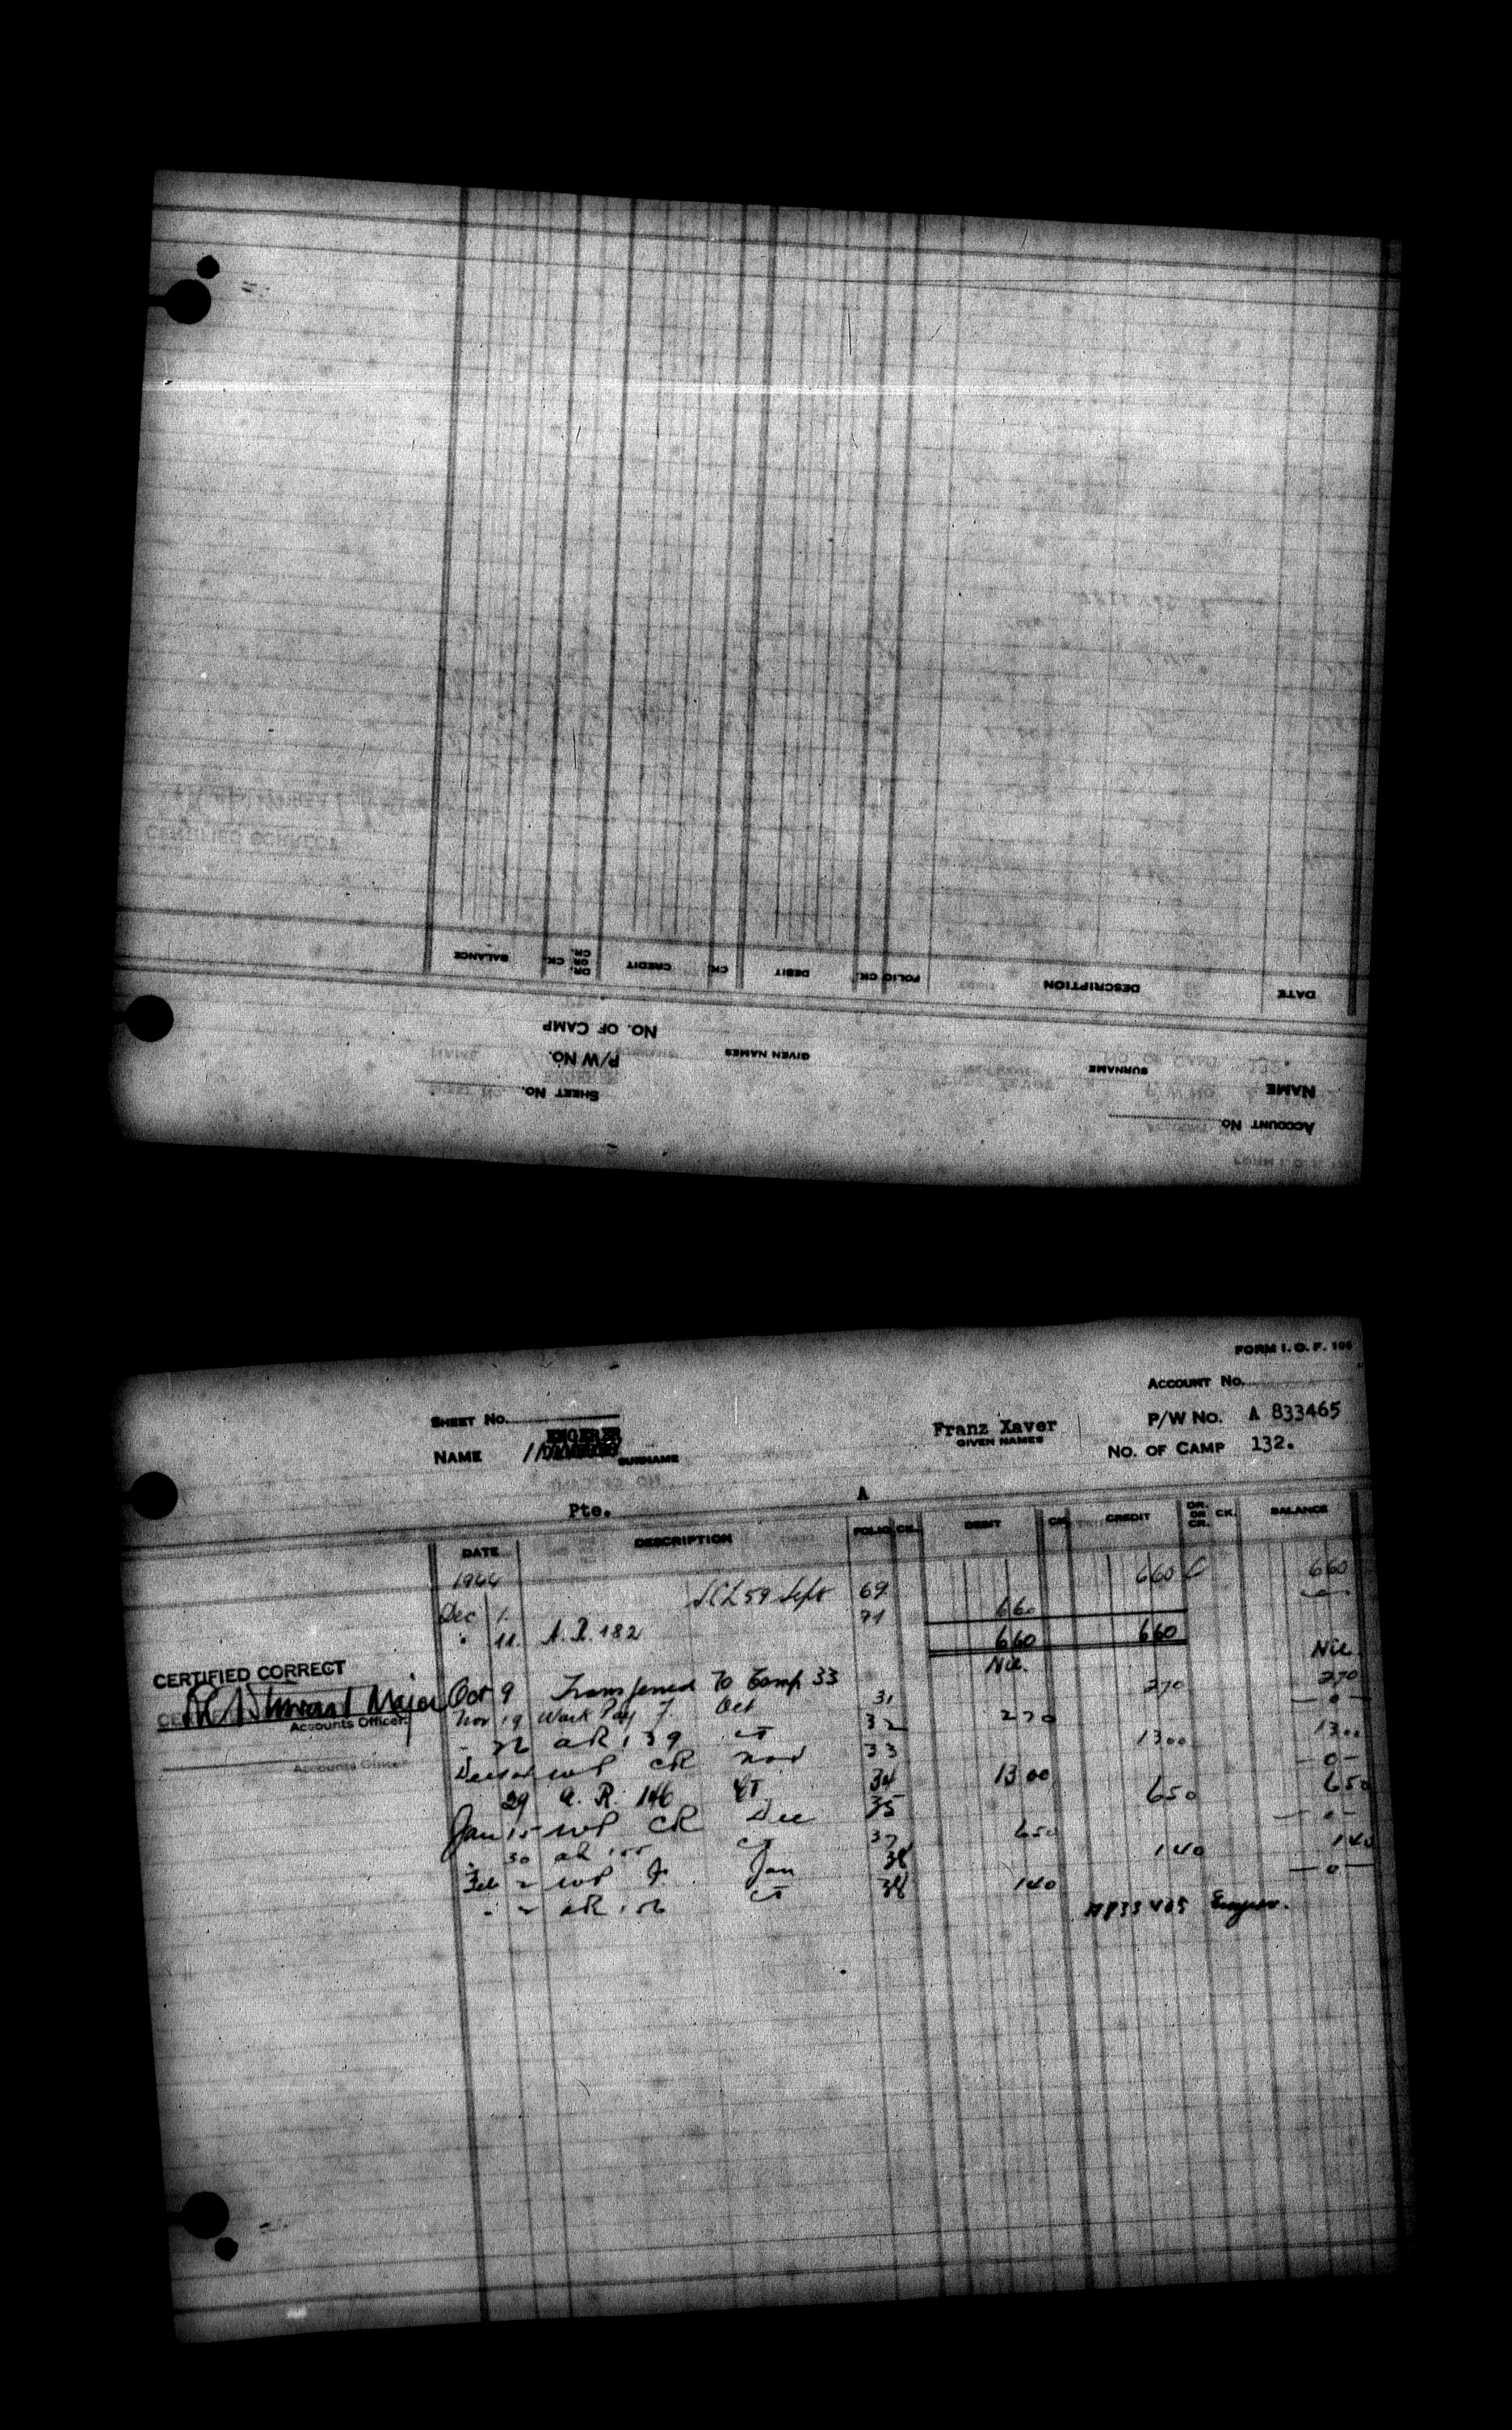 ACCOUNT No.
NAME
SURNAME
GIVEN NAMES
SHEET No.
P/W No.
No. OF CAMP
DATE DESCRIPTION FOLIO CK. DEBIT CK. CREDIT DR. OR CR. CK. BALANCE
FORM I. O. F. 100
ACCOUNT No.
SHEET No.
P/W No. A 833465
NAME ENGERER SURNAME Franz Xaver GIVEN NAMES
No. OF CAMP 132.
Pte. A
DATE DESCRIPTION FOLIO CK. DEBIT CK. CREDIT DR. OR CR. CK. BALANCE
1944
Dec 1. 59 Sept 69 660 C 660
" 11. A.R. 182 71 660
660 660
CERTIFIED CORRECT
Major
Accounts Officer.
Oct 9 Transferred to Camp 33 Nil. Nil.
Nov 19 Work Pay Oct 31 270 270
" 22 AR 139 CT 32 270 — 0 —
Dec WP CR Nov 33 1300 1300
29 A. R. 146 CT 34 1300 — 0 —
Jan 15 WP CR Dec 35 650 650
" 30 AR 155 CT 37 650 — 0 —
Feb 2 WP Jan 38 140 140
" " AR 156 CT 38 140 — 0 —
A833465 Engerer.